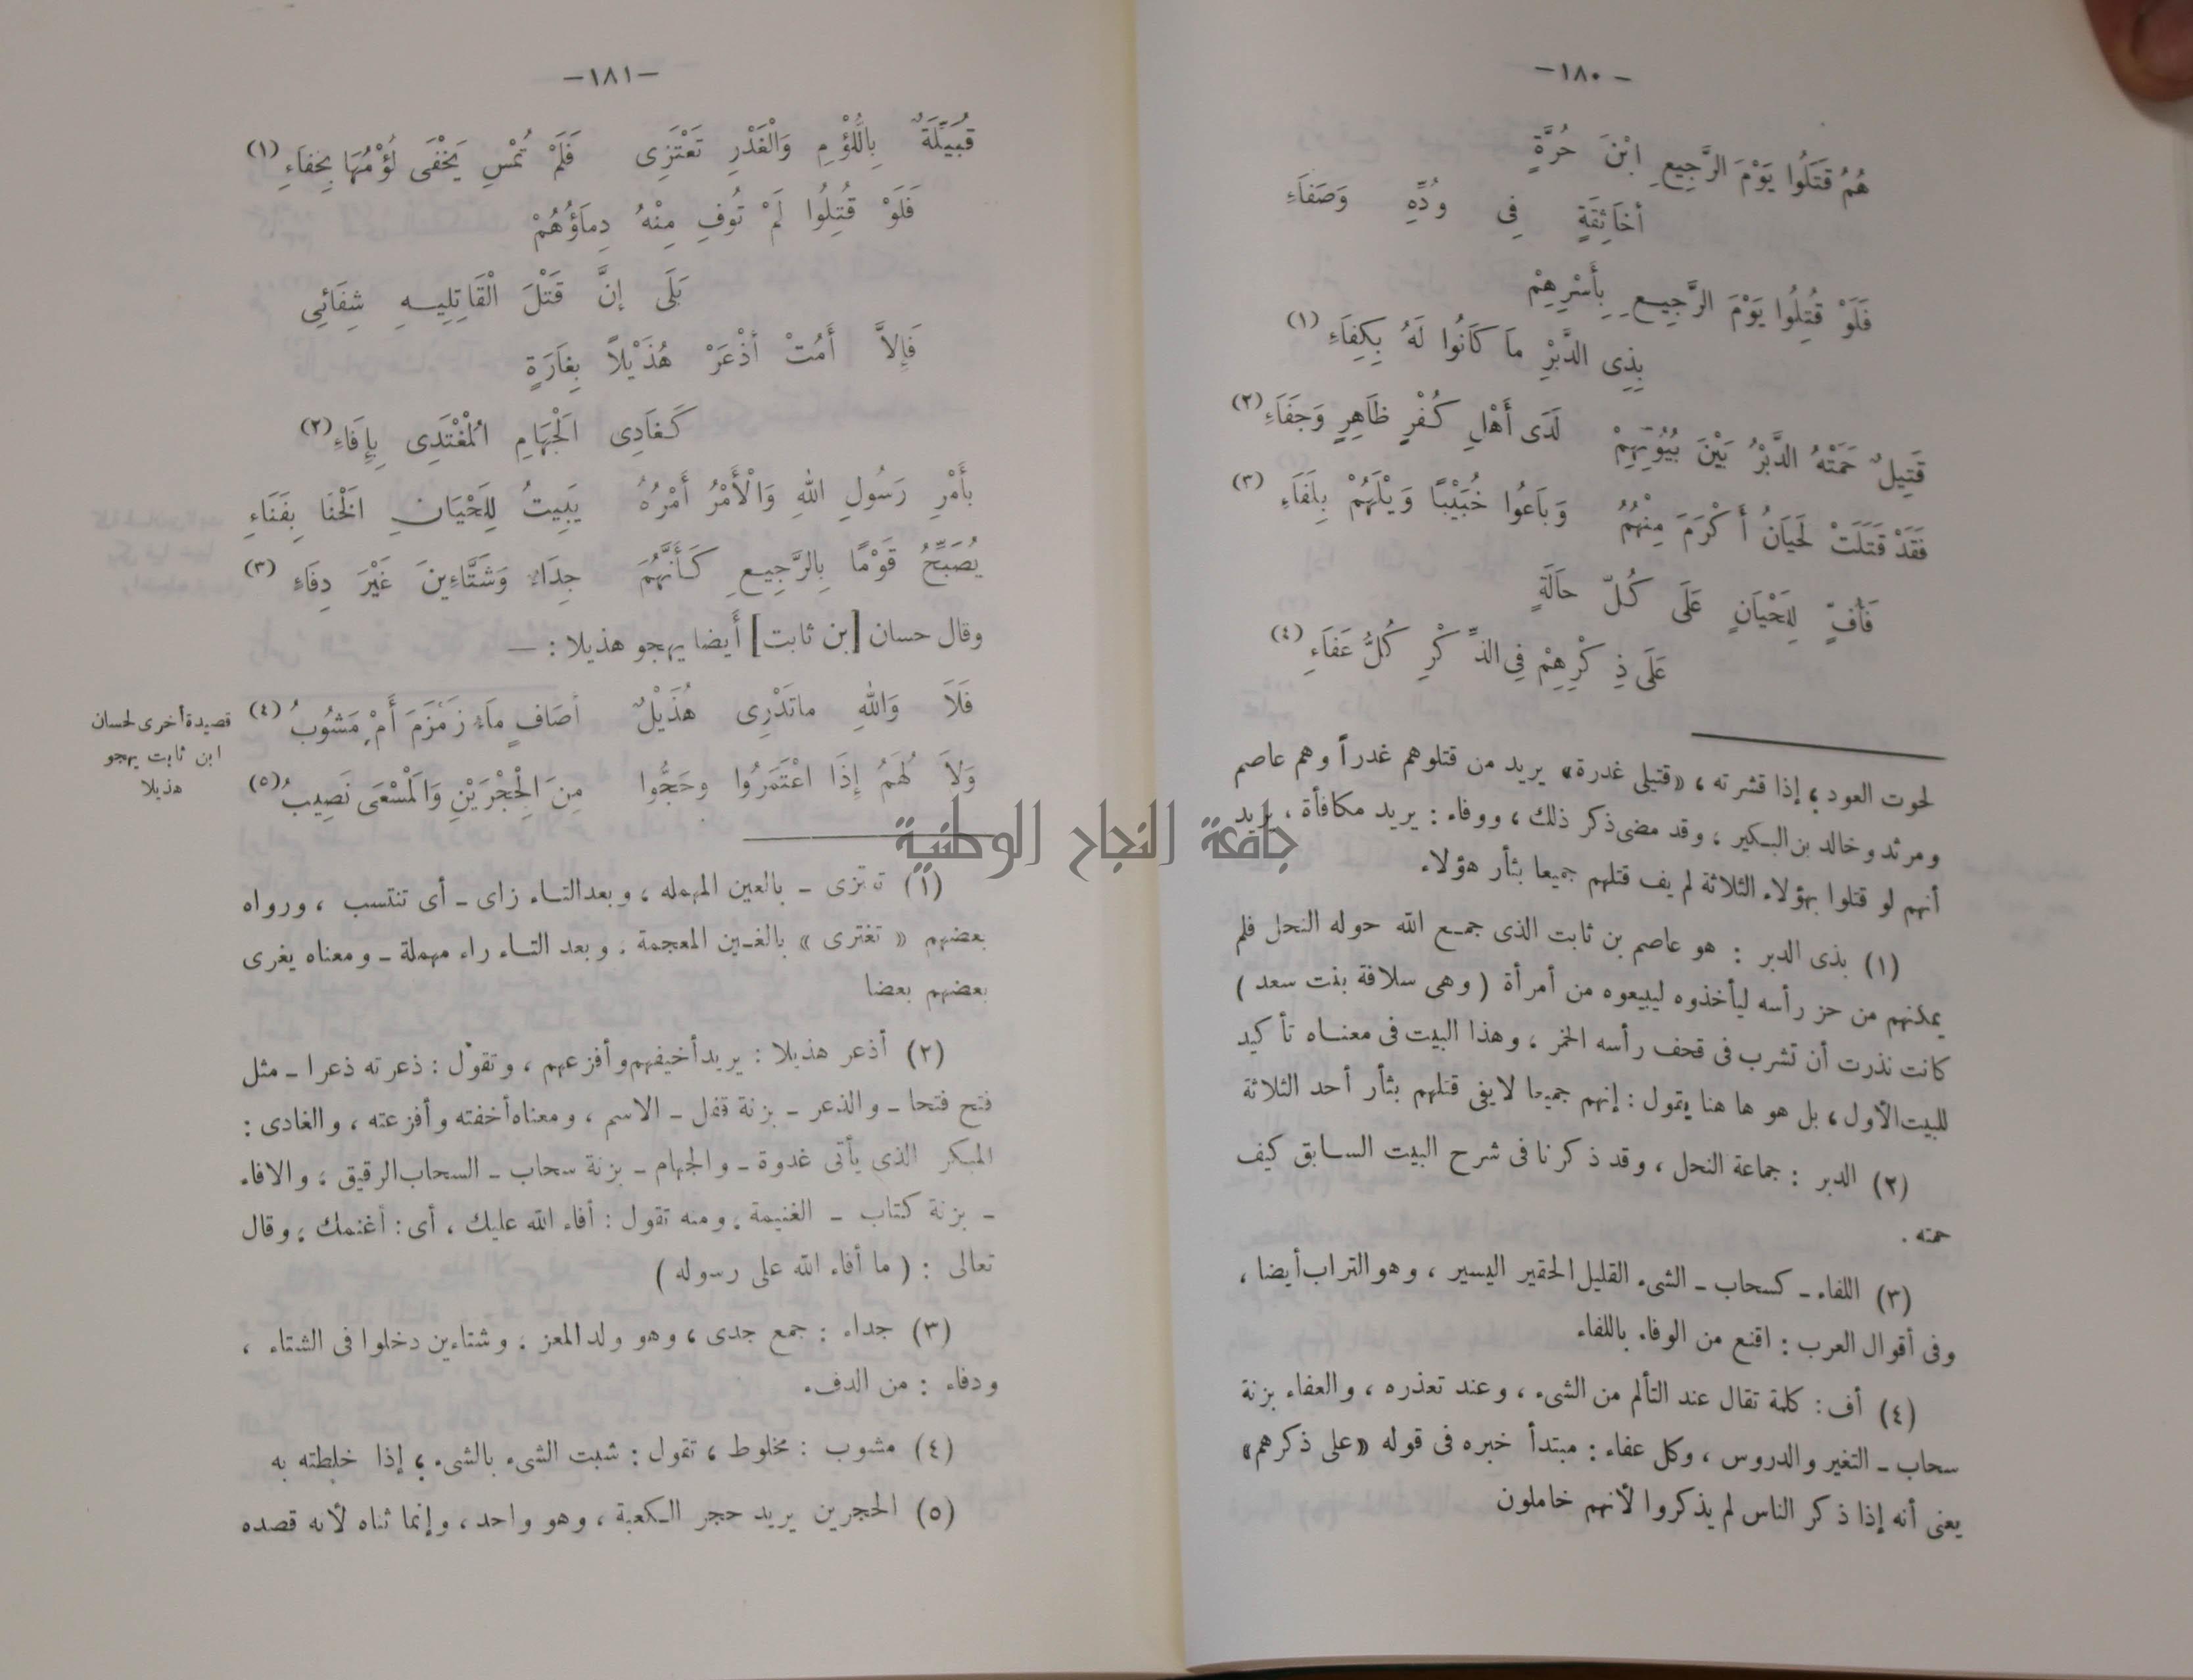 — ١٨٠ —
هُمُ قَتَلُوا يَوْمَ الرَّجِيعِ ابْنَ حُرَّةٍ
أخَاثِقَةٍ فِى وُدِّهِ وَصَفَاءِ
فَلَوْ قُتِلُوا يَوْمَ الرَّجِيعِ بِأَسْرِهِمْ
بِذِى الدَّبْرِ مَا كَانُوا لَهُ بِكِفَاءِ (١)
قَتِيلٌ حَمَتْهُ الدَّبْرُ بَيْنَ بُيُوتِهِمْ لَدَى أَهْلِ كُفْرٍ ظَاهِرٍ وَجَفَاءِ (٢)
فَقَدْ قَتَلَتْ لَحْيَانُ أَكْرَمَ مِنْهُمُ وَبَاعُوا خُبَيْبًا وَيْلَهُمْ بِلَفَاءِ (٣)
فَأُفٍّ لِلَحْيَانٍ عَلَى كُلِّ حَالَةٍ
عَلَى ذِكْرِهِمْ فِى الذِّكْرِ كُلُّ عَفَاءِ (٤)
لحوت العود ؛ إذا قشرته ، «قتيلى غدرة» يريد من قتلوهم غدراً وهم عاصم
ومرثد وخالد بن البكير ، وقد مضى ذكر ذلك ، ووفاء : يريد مكافأة ، يريد
أنهم لو قتلوا بهؤلاء الثلاثة لم يف قتلهم جميعا بثأر هؤلاء
(١) بذى الدبر : هو عاصم بن ثابت الذى جمع الله حوله النحل فلم
يمكنهم من حز رأسه ليأخذوه ليبيعوه من أمرأة ( وهى سلافة بنت سعد )
كانت نذرت أن تشرب فى قحف رأسه الخمر ، وهذا البيت فى معناه تأكيد
للبيت الأول ، بل هو ها هنا يقول : إنهم جميعا لا يفى قتلهم بثأر أحد الثلاثة
(٢) الدبر : جماعة النحل ، وقد ذكرنا فى شرح البيت السابق كيف
حمته .
(٣) اللفاء ـ كسحاب ـ الشىء القليل الحقير اليسير ، وهو التراب أيضا ،
وفى أقوال العرب : اقنع من الوفاء باللفاء
(٤) أف : كلمة تقال عند التألم من الشىء ، وعند تعذره ، والعفاء بزنة
سحاب ـ التغير والدروس ، وكل عفاء : مبتدأ خبره فى قوله «على ذكرهم»
يعنى أنه إذا ذكر الناس لم يذكروا لأنهم خاملون
— ١٨١ —
قُبَيِّلَةٌ بِاللُّؤْمِ وَالْغَدْرِ تَعْتَزِى فَلَمْ تُمْسِ يَخْفَى لُؤْمُهَا بِخفاَءِ (١)
فَلَوْ قُتِلُوا لَمْ تُوفِ مِنْهُ دِماَؤُهُمْ
بَلَى إنَّ قَتْلَ الْقَاتِلِيهِ شِفَائِى
فَإِلاَّ أَمُتْ أذْعَرْ هُذَيْلاً بِغَارَةٍ
كَغَادِى الْجَهَامِ الْمُغْتَدِى بِإِفَاءِ (٢)
بِأَمْرِ رَسُولِ اللهِ وَالْأَمْرُ أَمْرُهُ يَبِيتُ لِلَحْيَانِ الْخَنَا بِفَنَاءِ
يُصَبِّحُ قَوْمًا بِالرَّجِيعِ كَأَنَّهُمْ جِدَاءُ وَشَتَّاءِينَ غَيْرَ دِفَاءِ (٣)
وقال حسان [بن ثابت] أَيضا يهجو هذيلا : —
فَلَا وَاللهِ ماتَدْرِى هُذَيْلٌ أصَافٍ مَاءُ زَمْزَمَ أَمْ مَشُوبُ (٤)
وَلَا لَهُمُ إِذَا اعْتَمَرُوا وحَجُّوا مِنَ الْحِجْرَيْنِ وَالْمَسْعَى نَصِيبُ (٥)
قصيدة أخرى لحسان
ابن ثابت يهجو
هذيلا
(١) تعتزى ـ بالعين المهمله ، وبعد التاء زاى ـ أى تنتسب ، ورواه
بعضهم « تغترى » بالغين المعجمة . وبعد التاء راء مهملة ـ ومعناه يغرى
بعضهم بعضا
(٢) أذعر هذيلا : يريد أخيفهم وأفزعهم ، وتقول : ذعرته ذعرا ـ مثل
فتح فتحا ـ والذعر ـ بزنة قفل ـ الاسم ، ومعناه أخفته وأفزعته ، والغادى :
المبكر الذى يأتى غدوة ـ والجهام ـ بزنة سحاب ـ السحاب الرقيق ، والافاء
ـ بزنة كتاب ـ الغنيمة ، ومنه تقول : أفاء الله عليك ، أى : أغنمك ، وقال
تعالى : ( ما أفاء الله على رسوله )
(٣) جداء : جمع جدى ، وهو ولد المعز . وشتاءين دخلوا فى الشتاء ،
ودفاء : من الدفء
(٤) مشوب : مخلوط ، تقول : شبت الشىء بالشىء ؛ إذا خلطته به
(٥) الحجرين يريد حجر الكعبة ، وهو واحد ، وإنما ثناه لأنه قصده
جامعة النجاح الوطنية